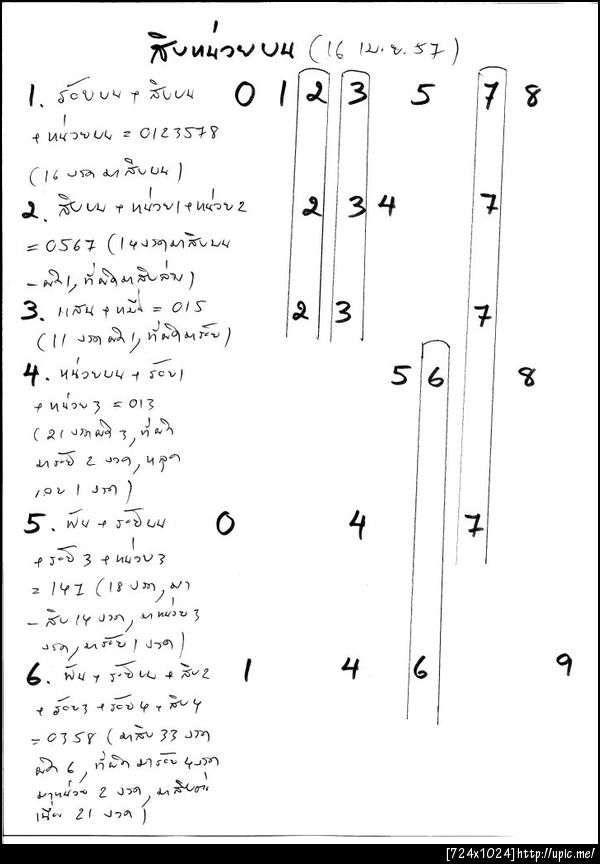 สิบหน่วยบน (16 เม.ย. 57)
1. ร้อยบน + สิบบน 0 1 2 3 5 7 8
+ หน่วยบน = 0123578
(16 งวด มาสิบบน)
2. สิบบน + หน่วย1 + หน่วย2 2 3 4 7
= 0567 (14 งวดมาสิบบน
- ผิด1, ที่ผิดมาสิบล่าง)
3. แสน + หมื่น = 015 2 3 7
(11 งวด ผิด1, ที่ผิดมาร้อย)
4. หน่วยบน + ร้อย1 5 6 8
+ หน่วย3 = 013
(21 งวดผิด 3, ที่ผิด
มาร้อย 2 งวด, หลุด
1 งวด)
5. พัน + ร้อยบน 0 4 7
+ ร้อย3 + หน่วย3
= 147 (18 งวด, มา
- สิบ 14 งวด, มาหน่วย 3
งวด, มาร้อย 1 งวด)
6. พัน + ร้อยบน + สิบ2 1 4 6 9
+ ร้อย3 + ร้อย4 + สิบ4
= 0358 (มาสิบ 33 งวด
ผิด 6, ที่ผิด มาร้อย 4 งวด
มาหน่วย 2 งวด, มาสิบต่อ
เนื่อง 21 งวด)
[724x1024]http://upic.me/